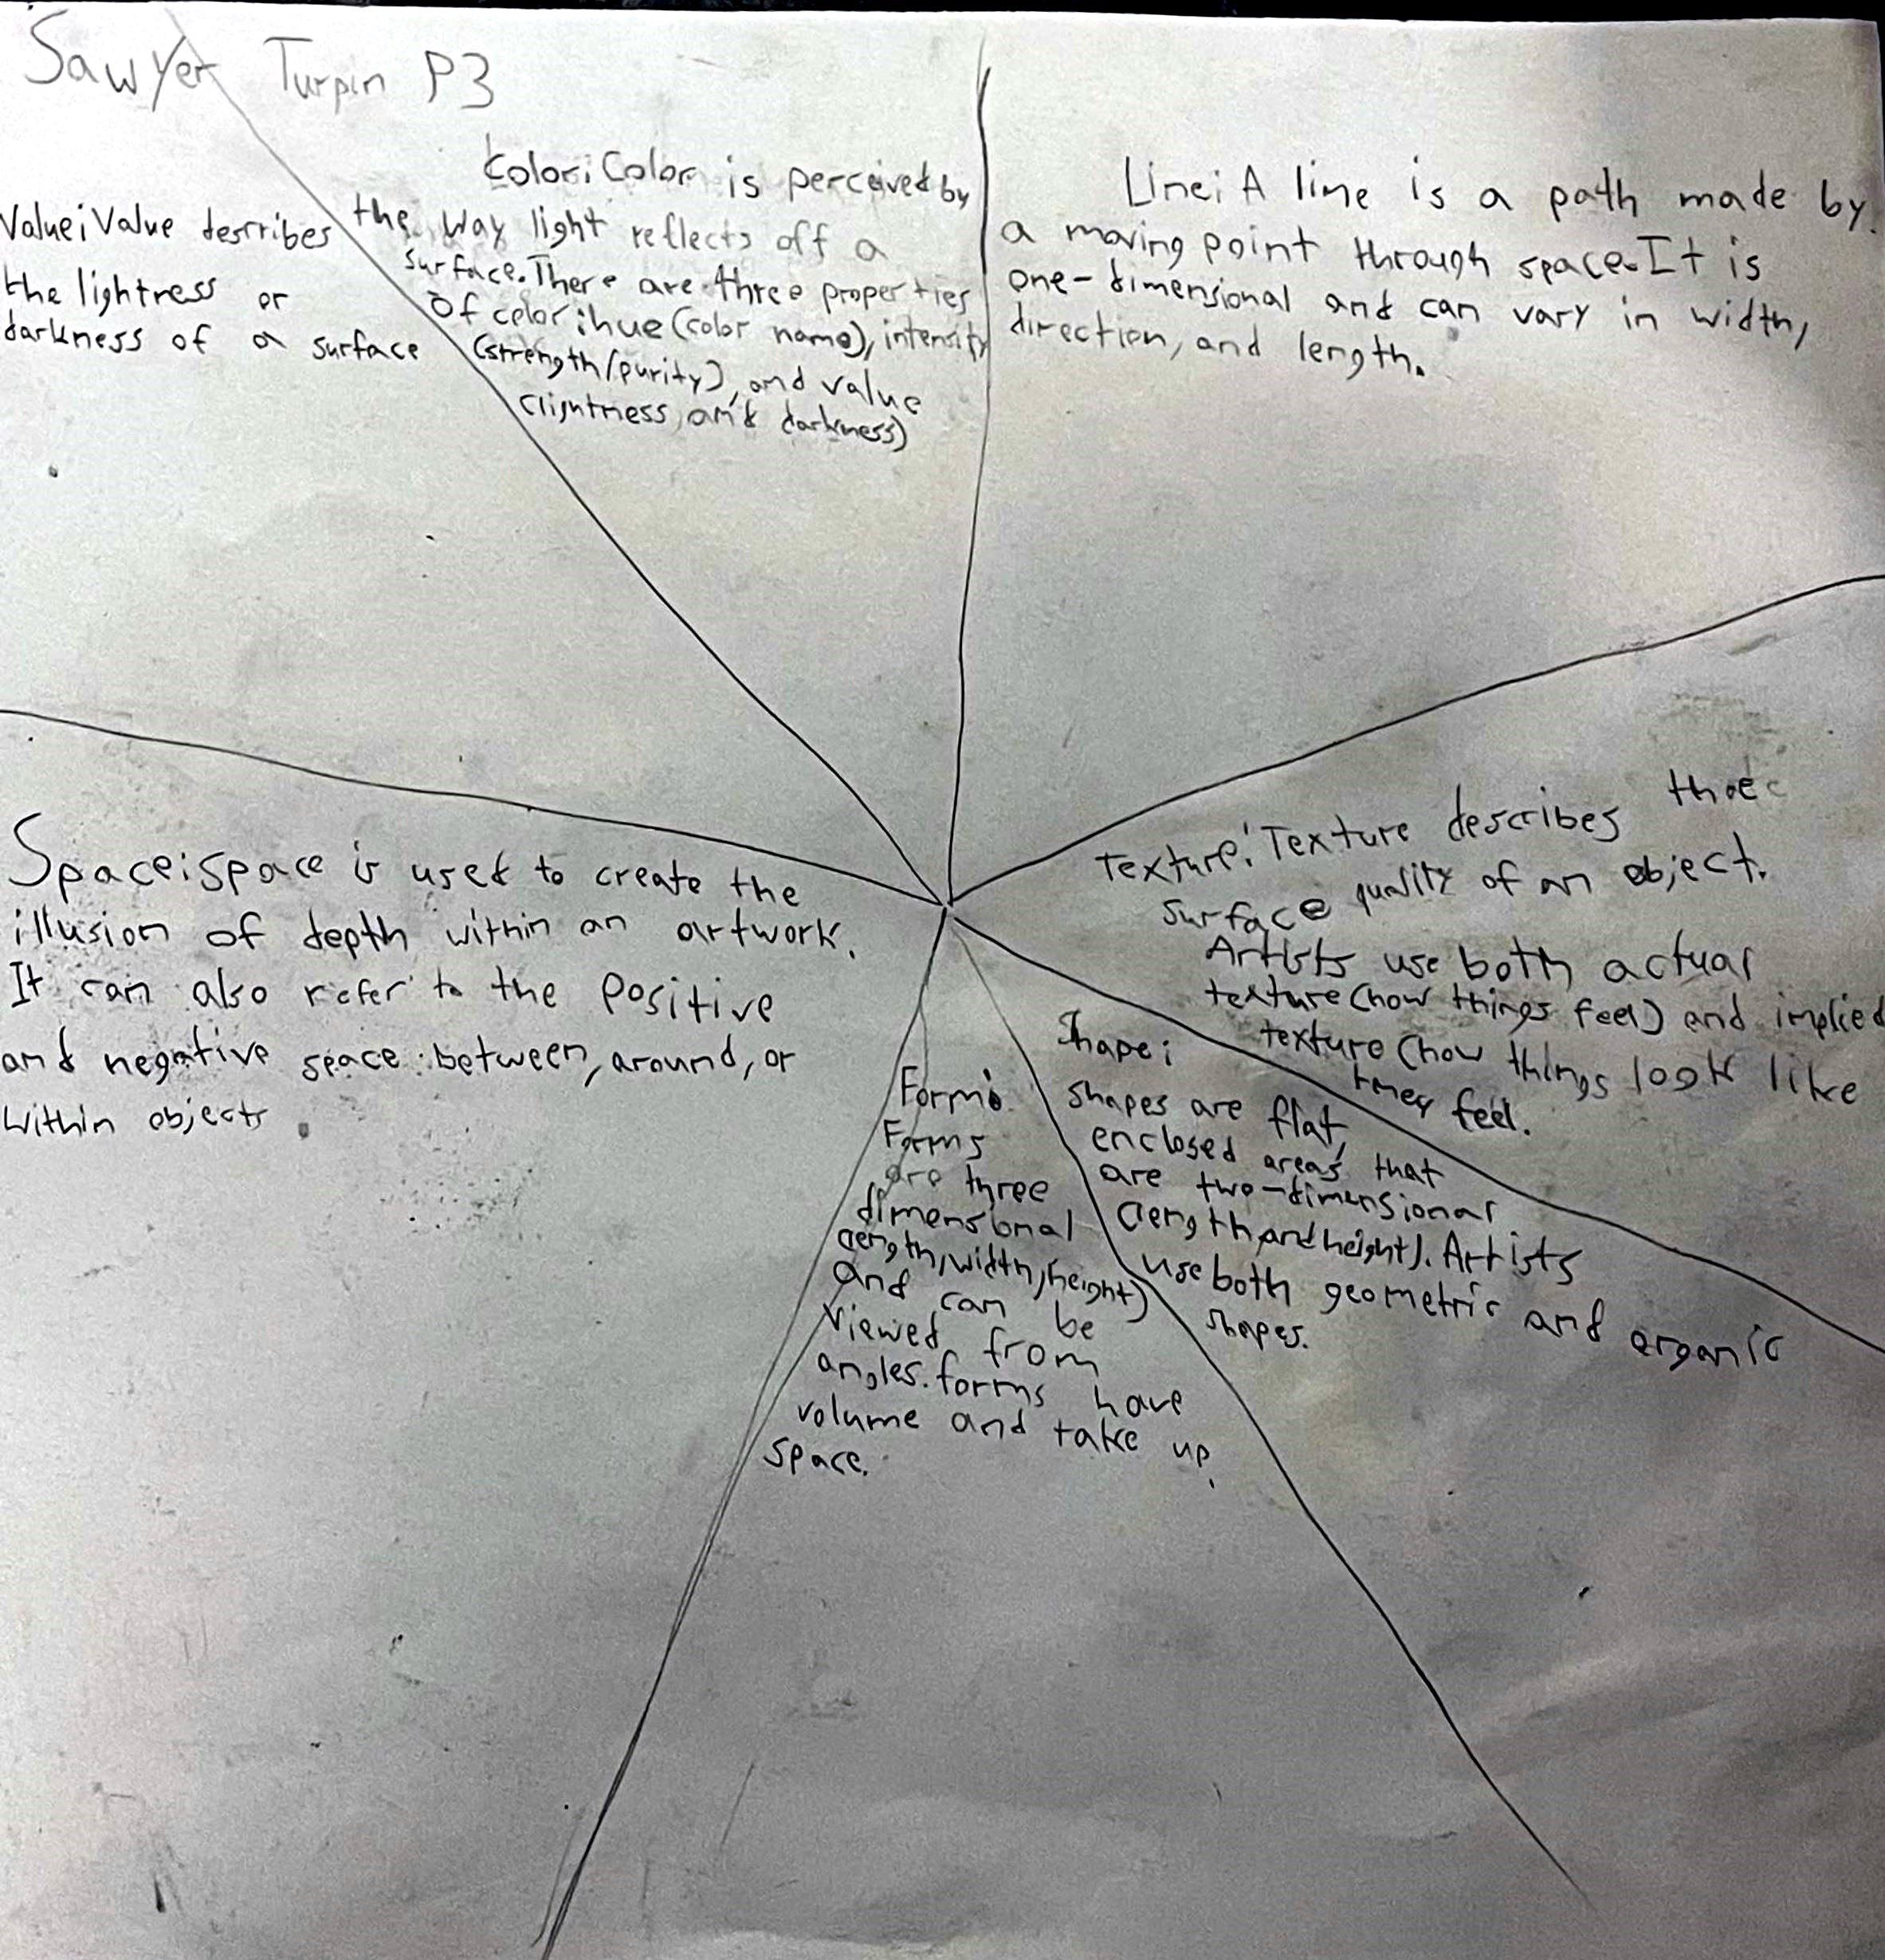 Sawyer Turpin P3
Color: Color is perceived by
the way light reflects off a
surface. There are three properties
of color: hue (color name), intensity
(strength/purity), and value
(lightness and darkness)
Line: A line is a path made by
a moving point through space. It is
one-dimensional and can vary in width,
direction, and length.
Value: Value describes
the lightness or
darkness of a surface
Texture: Texture describes the
surface quality of an object.
Artists use both actual
texture (how things feel) and implied
texture (how things look like
they feel.
Space: space is used to create the
illusion of depth within an artwork.
It can also refer to the positive
and negative space between, around, or
within objects
Shape:
shapes are flat,
enclosed areas that
are two-dimensional
(length and height). Artists
use both geometric and organic
shapes.
Form:
Forms
are three
dimensional
(length, width, height)
and can be
viewed from
angles. forms have
volume and take up
space.